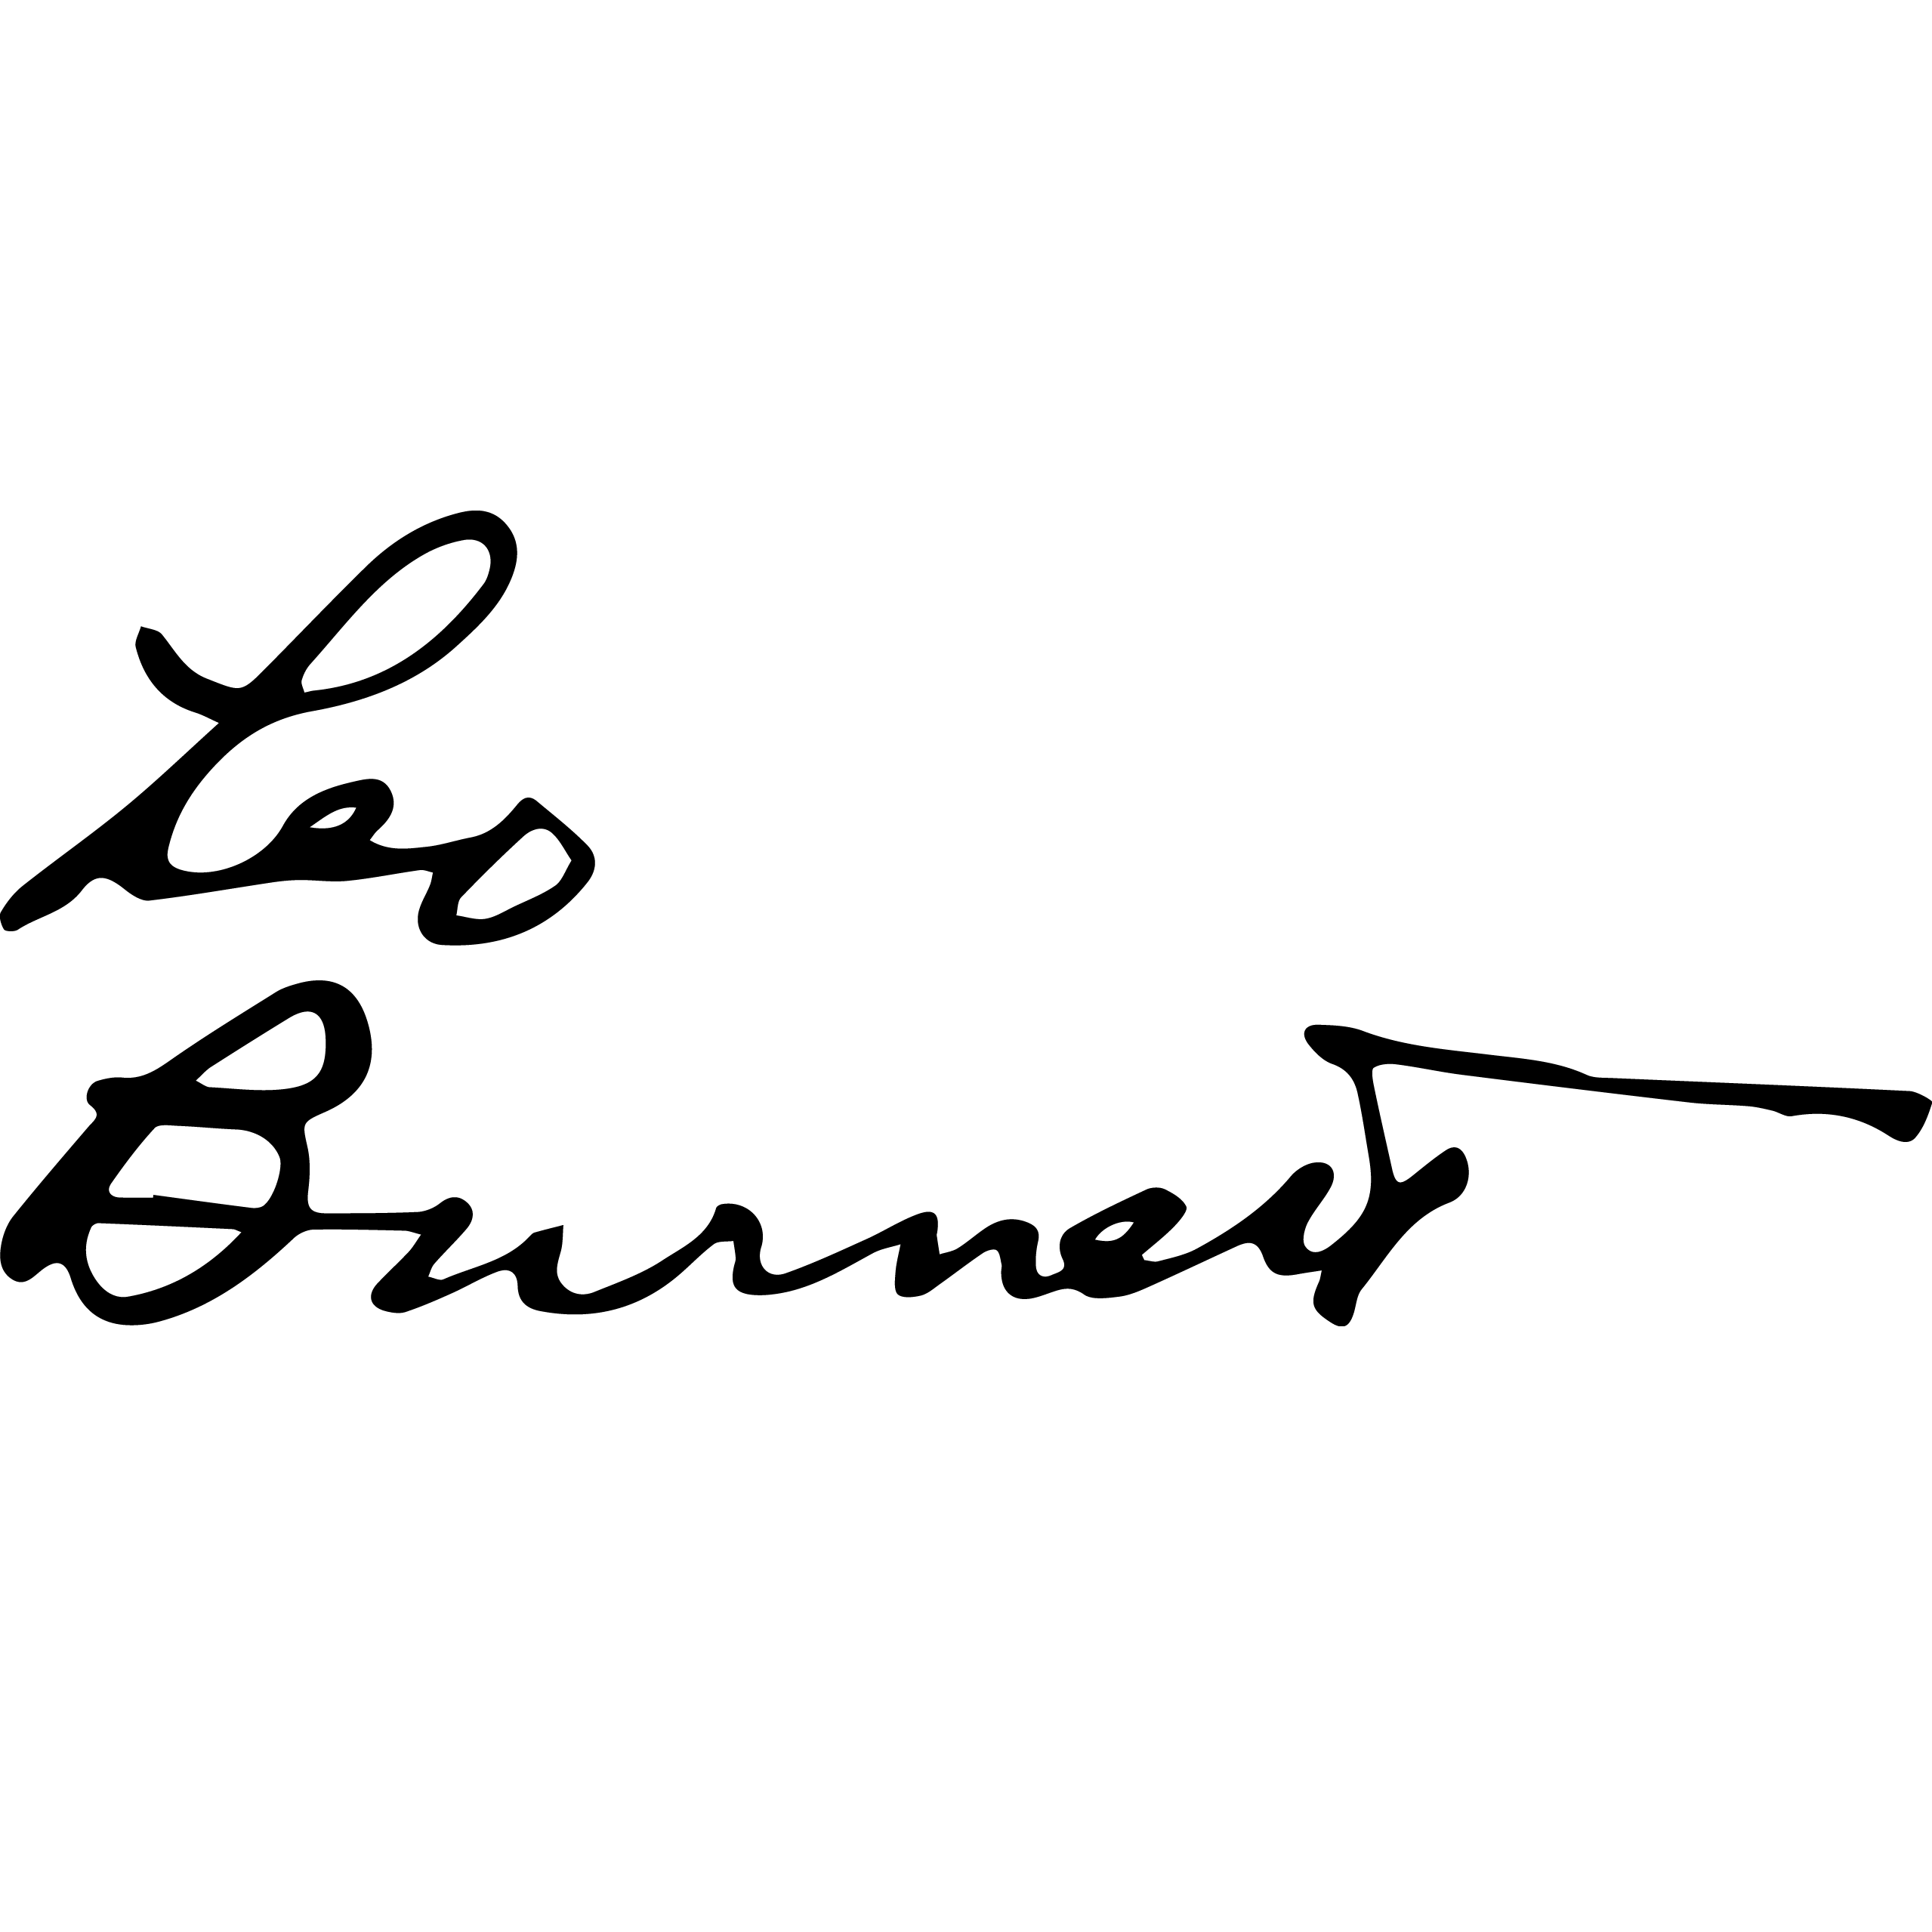 Leo
Burnett